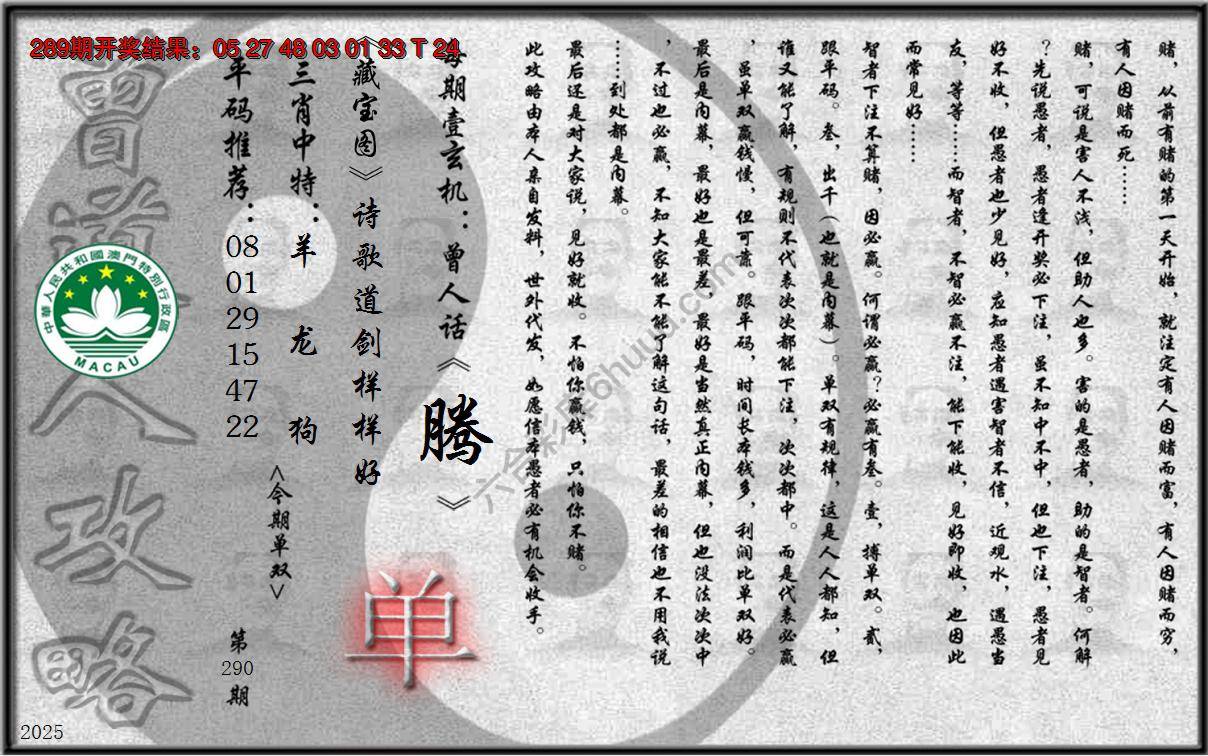 289期开奖结果：05 27 48 03 01 33 T 24
赌，从前有赌的第一天开始，就注定有人因赌而富，有人因赌而穷，
有人因赌而死……
赌，可说是害人不浅，但助人也多。害的是愚者，助的是智者。何解
？先说愚者，愚者逢开奖必下注，虽不知中不中，但也下注，愚者见
好不收，但愚者也少见好，应知愚者遇害智者不信，近观水，遇愚当
友，等等……而智者，不智必赢不注，能下能收，见好即收，也因此
而常见好……
智者下注不算赌，因必赢。何谓必赢？必赢有叁。壹，搏单双。贰，
跟平码。叁，出千（也就是内幕）。单双有规律，这是人人都知，但
谁又能了解，有规则不代表次次都能下注，次次都中。而是代表必赢
，虽单双赢钱慢，但可靠。跟平码，时间长本钱多，利润比单双好。
最后是内幕，最好也是最差，最好是当然真正内幕，但也没法次次中
，不过也必赢，不知大家能不能了解这句话，最差的相信也不用我说
……到处都是内幕。
最后还是对大家说，见好就收。不怕你赢钱，只怕你不赌。
此攻略由本人亲自发料，世外代发，如愿信本愚者必有机会收手。
每期壹玄机：曾人话《腾》
《藏宝图》诗歌道剑样样好
单
三肖中特：羊 龙 狗
<今期单双>
平码推荐：08 01 29 15 47 22
第290期
曾道人攻略
中華人民共和國澳門特別行政區
MACAU
2025
六合彩库6huuu.com